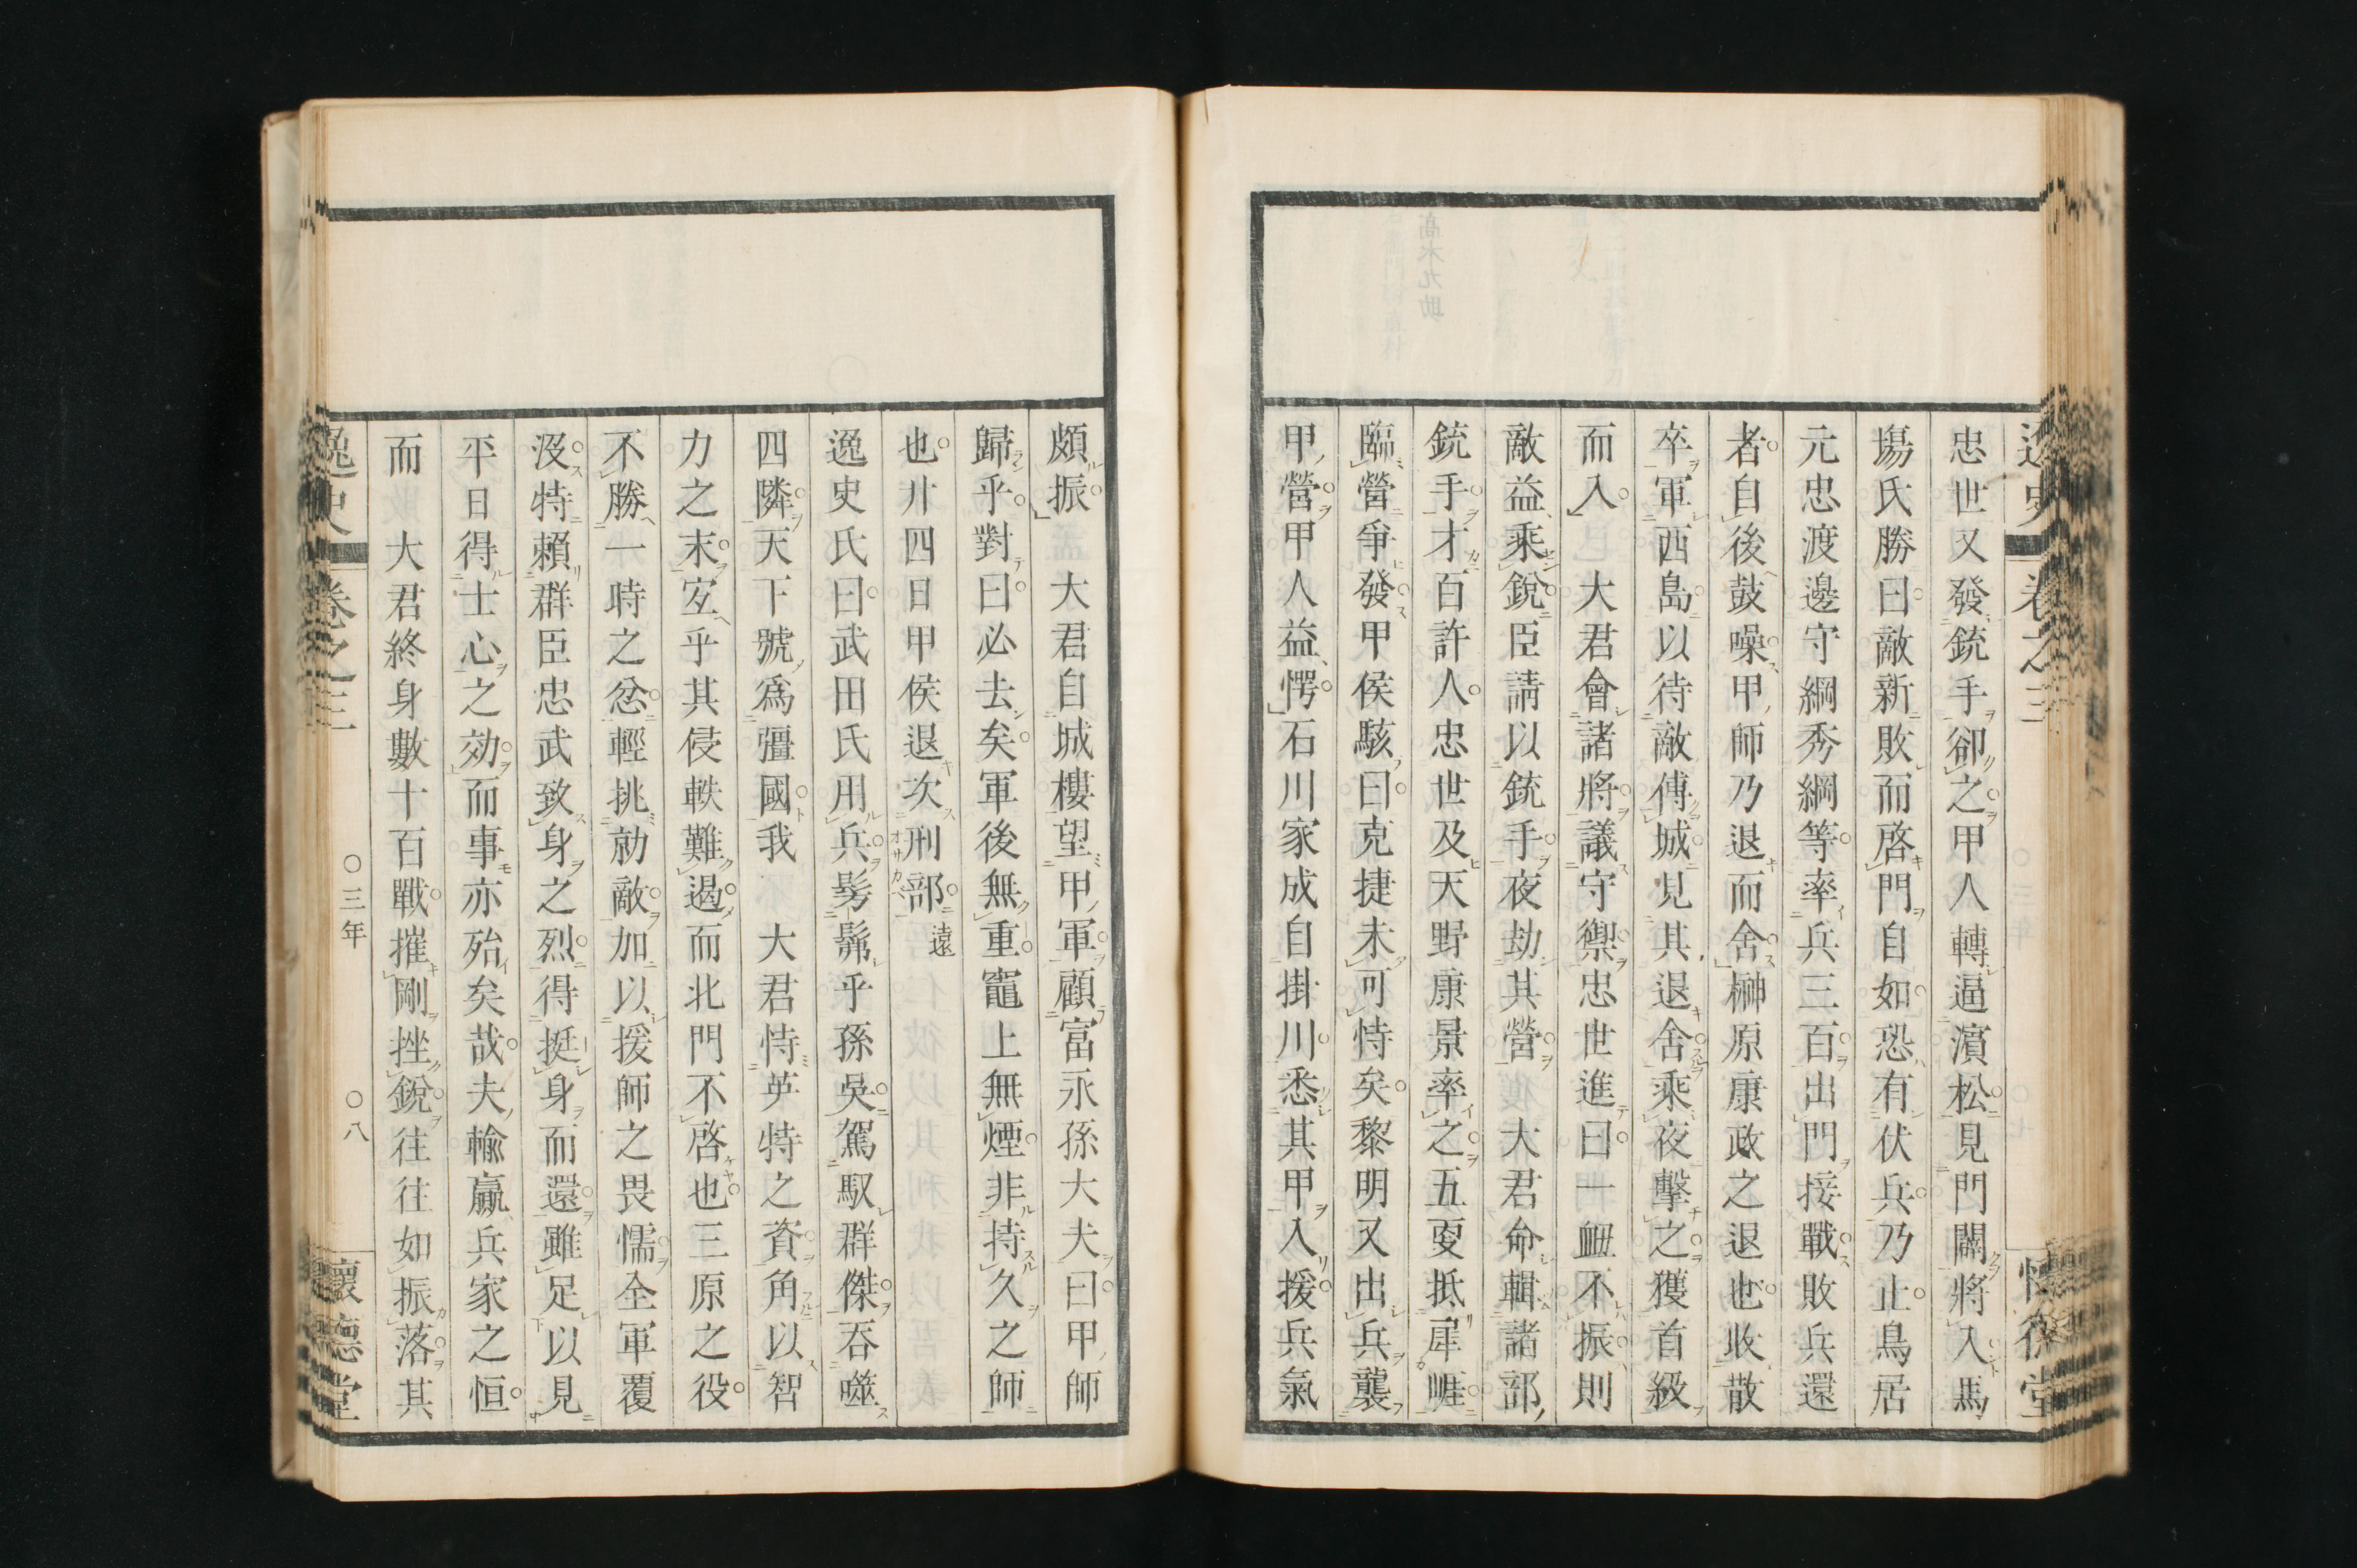 忠世又發銃手卻之甲人轉逼濵松見門闢將入馬
塲氏勝曰敵新敗而啓門自如恐有伏兵乃止鳥居
元忠渡邊守綱秀綱等率兵三百出門接戰敗兵還
者自後鼓噪甲師乃退而舍榊原康政之退也收散
卒軍西島以待敵傳城見其退舍乘夜擊之獲首級
而入　大君會諸將議守禦忠世進曰一衂不振則
敵益乘銳臣請以銃手夜劫其營　大君命輯諸部
銃手才百許人忠世及天野康景率之五叓抵犀崕
臨營爭發甲侯駭曰克捷未可恃矣黎明又出兵襲
甲營甲人益愕石川家成自掛川悉其甲入援兵氣
頗振　大君自城樓望甲軍顧富永孫大夫曰甲師
歸乎對曰必去矣軍後無重竈上無煙非持久之師
也廾四日甲侯退次刑部遠
逸史氏曰武田氏用兵髣髴乎孫吳駕馭群傑吞噬
四隣天下號爲彊國我　大君恃英特之資角以智
力之末宐乎其侵軼難遏而北門不啓也三原之役
不勝一時之忿輕挑勍敵加以援師之畏懦全軍覆
沒特賴群臣忠武致身之烈得挺身而還雖足以見
平日得士心之効而事亦殆矣哉夫輸贏兵家之恒
而　大君終身數十百戰摧剛挫銳往往如振落其
逸史　卷之三　〇三年　〇八　懷德堂